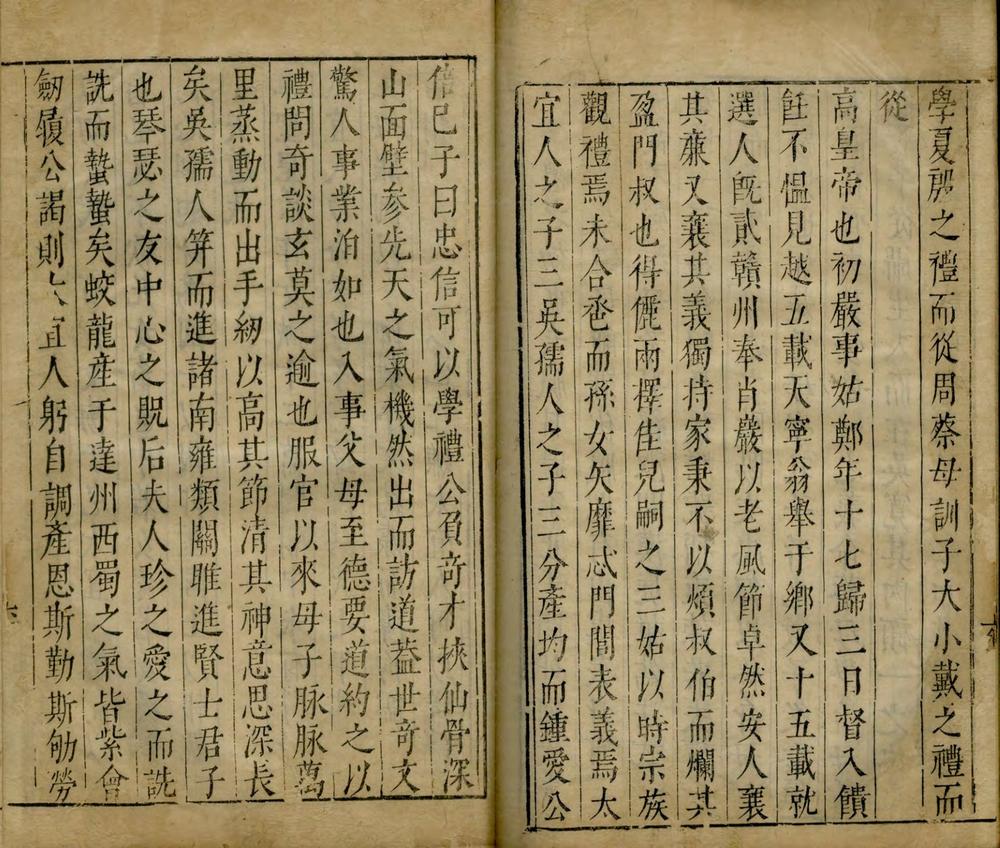 學夏殷之禮而從周蔡母訓子大小戴之禮而
從
高皇帝也初嚴事姑鄭年十七歸三日督入饋
飪不慍見越五載天寧翁舉于鄉又十五載就
選人旣貳贛州奉肖嚴以老風節卓然安人襄
其亷又襄其義獨持家秉不以煩叔伯而爛其
盈門叔也得儷雨擇佳兒嗣之三姑以時宗族
觀禮焉未合卺而孫女矢靡忒門閭表義焉太
宜人之子三吳孺人之子三分產均而鍾愛公
倍巳子曰忠信可以學禮公負奇才挾仙骨深
山面壁参先天之氣機然出而訪道葢世奇文
驚人事業泊如也入事父母至德要道約之以
禮問奇談玄莫之逾也服官以來母子脉脉萬
里蒸動而出手紉以高其節清其神意思深長
矣吳孺人笄而進諸南雍類關雎進賢士君子
也琴瑟之友中心之貺后夫人珍之愛之而詵
詵而蟄蟄矣蛟龍産于達州西蜀之氣皆紫會
劒履公謁則太宜人躬自調產恩斯勤斯劬勞